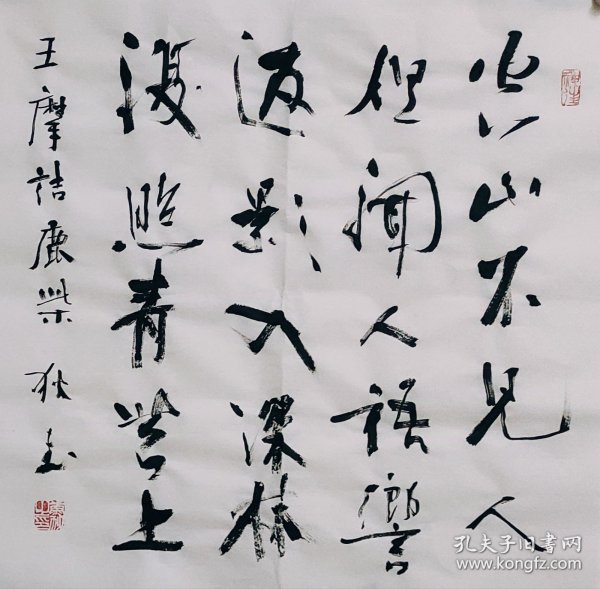 空山不見人
但聞人語響
返影入深林
復照青苔上
王摩詰鹿柴 狄書
孔夫子旧書网
www.kongfz.com